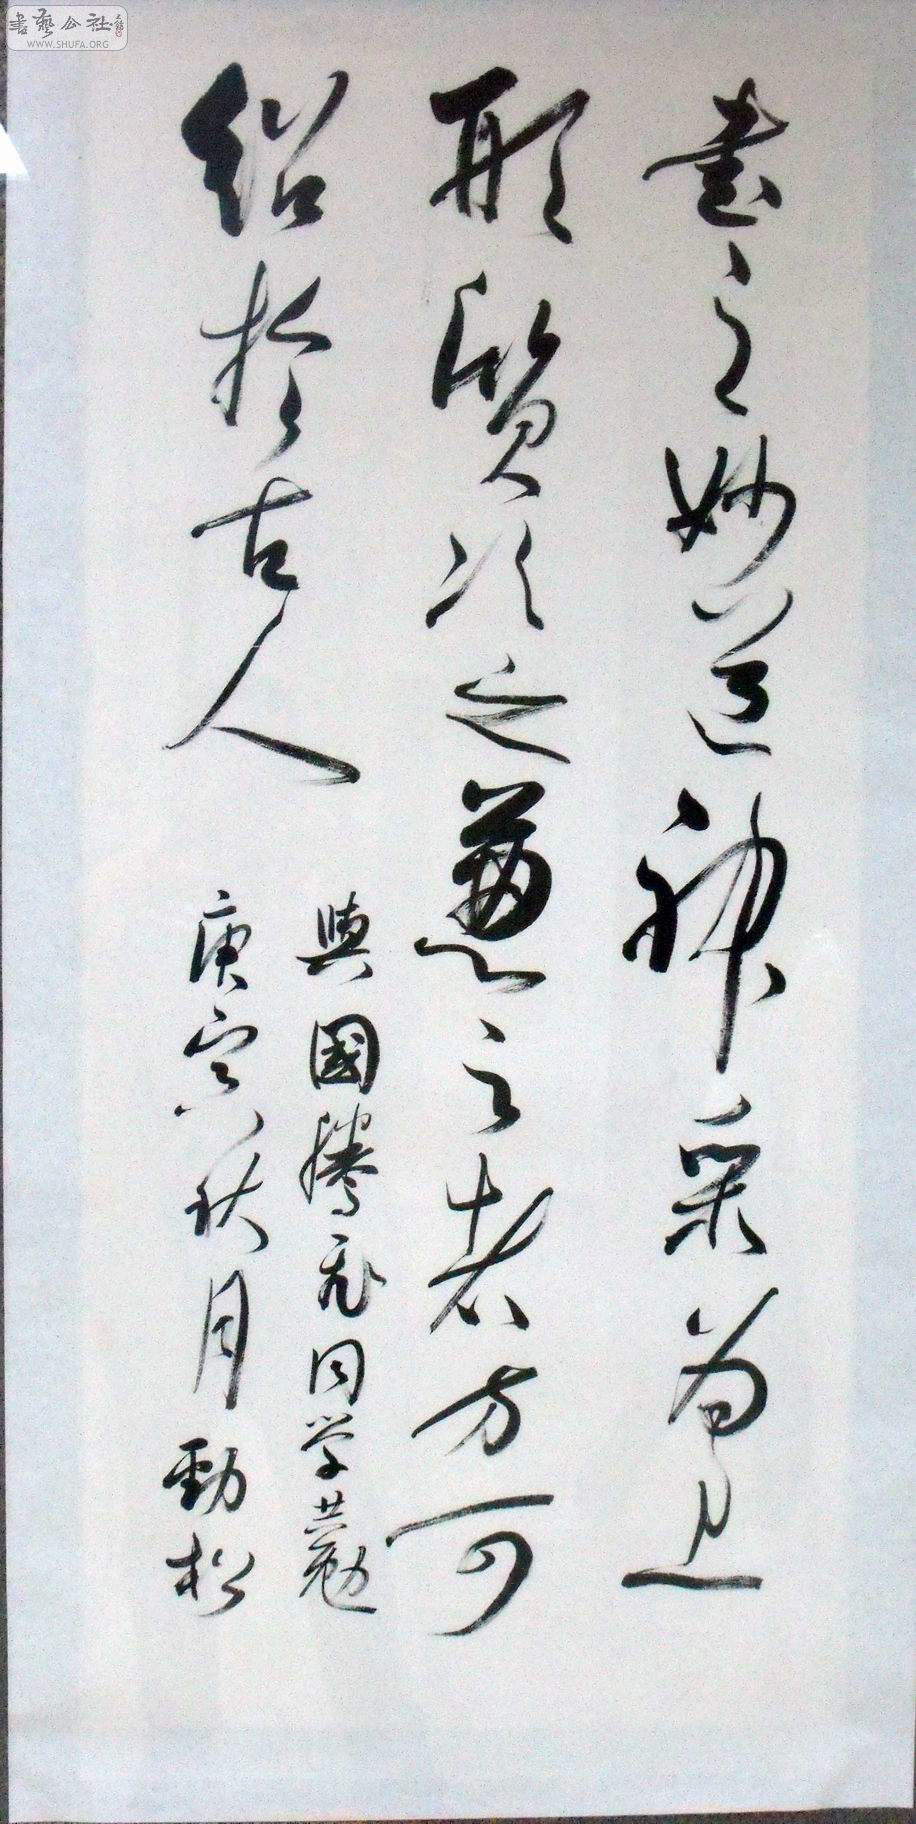 書之妙道神采為上
形質次之兼之者方可
紹於古人
與國騰飛同学共勉
庚寅秋月勁松
書藝公社
WWW.SHUFA.ORG